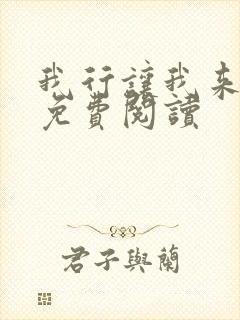 我行讓我來
免費閱讀
君子與蘭